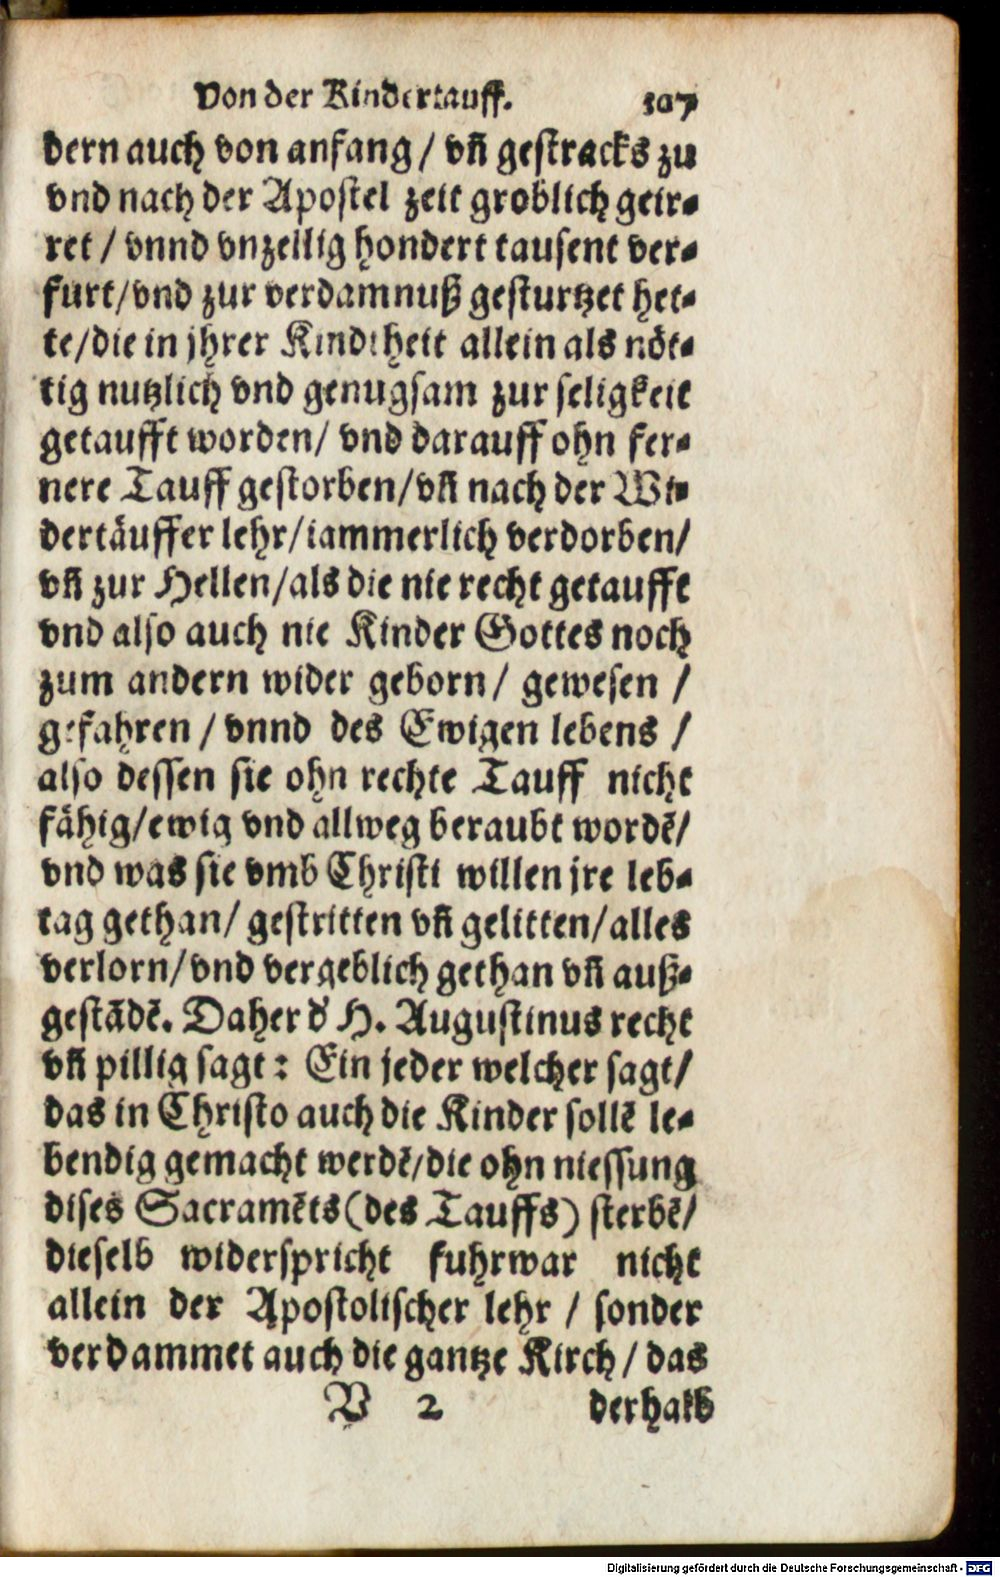 Von der Kindertauff. 307
dern auch von anfang / vñ gestracks zu
vnd nach der Apostel zeit groblich geir⸗
ret / vnnd vnzellig hondert tausent ver⸗
furt/vnd zur verdamnuß gesturtzet het⸗
te/die in jhrer Kindtheit allein als nöt⸗
tig nutzlich vnd genugsam zur seligkeit
getaufft worden/ vnd darauff ohn fer⸗
nere Tauff gestorben/vñ nach der Wi⸗
dertäuffer lehr/iammerlich verdorben/
vñ zur Hellen/als die nie recht getaufft
vnd also auch nie Kinder Gottes noch
zum andern wider geborn/ gewesen /
gefahren / vnnd des Ewigen lebens /
also dessen sie ohn rechte Tauff nicht
fähig/ewig vnd allweg beraubt wordẽ/
vnd was sie vmb Christi willen jre leb⸗
tag gethan/ gestritten vñ gelitten/alles
verlorn/vnd vergeblich gethan vñ auß⸗
gestãdẽ. Daher d' H. Augustinus recht
vñ pillig sagt: Ein jeder welcher sagt/
das in Christo auch die Kinder sollẽ le⸗
bendig gemacht werdẽ/die ohn niessung
dises Sacramẽts(des Tauffs) sterbẽ/
dieselb widerspricht fuhrwar nicht
allein der Apostolischer lehr / sonder
verdammet auch die gantze Kirch / das
V 2 derhalb
Digitalisierung gefördert durch die Deutsche Forschungsgemeinschaft - DFG